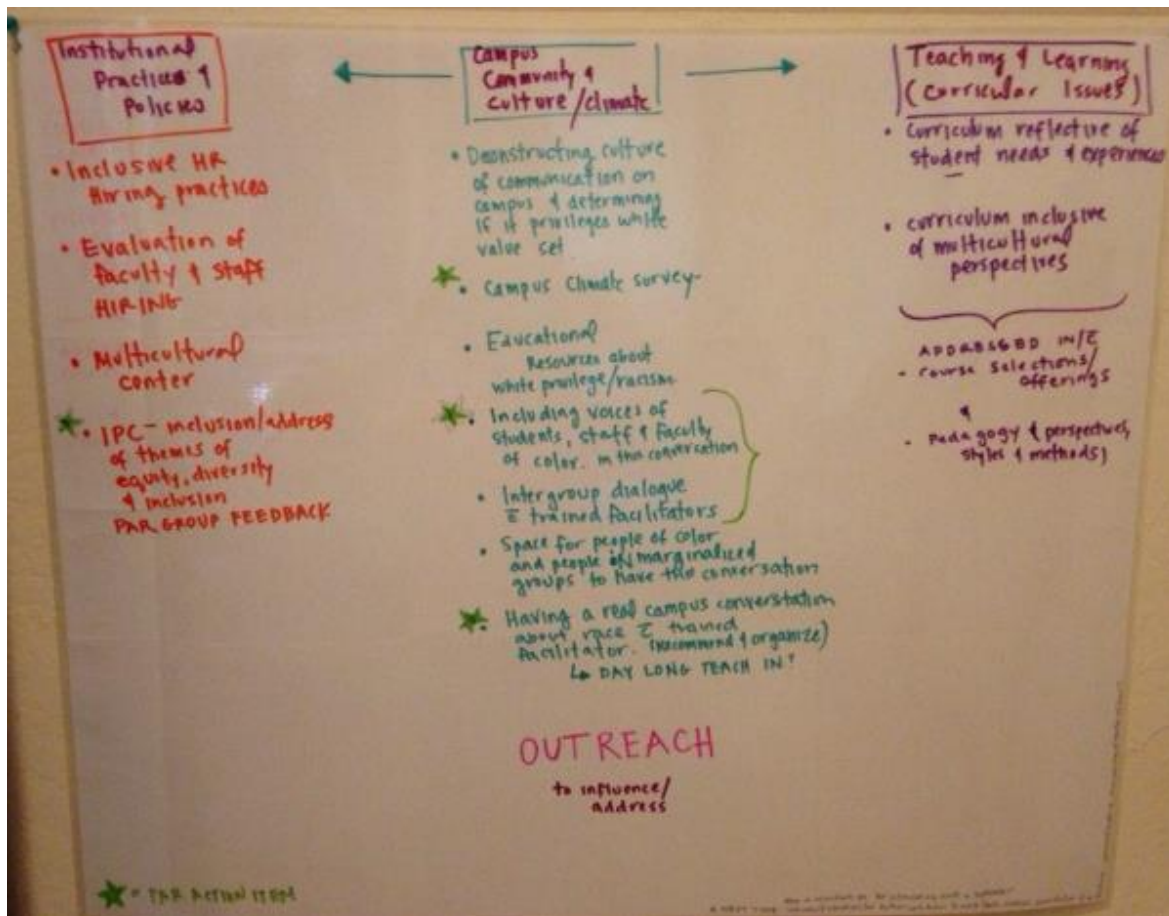 Institutional
Practices &
Policies
• Inclusive HR
Hiring practices
• Evaluation of
faculty & staff
HIRING
• Multicultural
center
★• IPC - inclusion/address
of themes of
equity, diversity
& inclusion
PAR GROUP FEEDBACK
Campus
Community &
culture/climate
• Deonstructing culture
of communication on
campus & determining
if it privileges white
value set
★• Campus Climate survey-
• Educational
Resources about
white privilege/racism
★• Including voices of
students, staff & faculty
of color. in this conversation
• Intergroup dialogue
c̄ trained facilitators
• Space for people of color
and people in marginaliced
groups to have this conversation
★• Having a real campus converstation
about race c̄ trained
facilitator. (recommend & organize)
↳ DAY LONG TEACH IN?
Teaching & Learning
(curricular Issues)
• Curriculum reflective of
student needs & experiences
• curriculum inclusive
of multicultural
perspectives
ADDRESSED IN/c̄
• course selections/
offerings
&
• Pedagogy & perspectives,
styles & methods)
OUTREACH
to influence/
address
★ = PAR ACTION ITEM